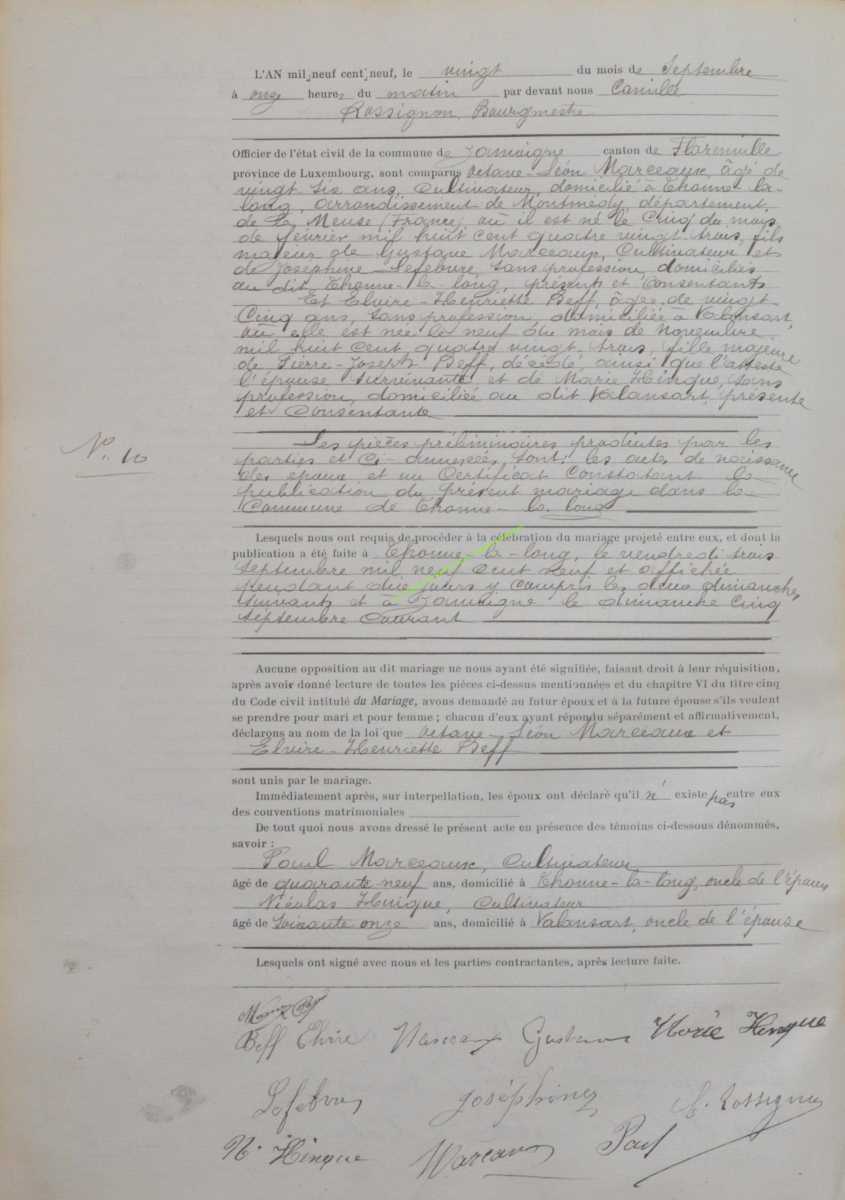 L'AN mil neuf cent neuf, le vingt du mois de Septembre
à onze heures du matin par devant nous Camille
Rossignon, Bourgmestre
Officier de l'état civil de la commune de Jamoigne canton de Florenville
province de Luxembourg, sont comparus Octave-Léon Marceaux, âgé de
vingt six ans, Cultivateur, domicilié à Thonne-la-
long, arrondissement de Montmédy, département
de la Meuse (France), où il est né le Cinq du mois
de février mil huit cent quatre vingt trois, fils
majeur de Gustave Marceaux, Cultivateur et
de Joséphine Lefebvre, Sans profession, domiciliés
au dit Thonne-la-long, présents et Consentants
Et Elvire-Henriette Beff, âgée de vingt
Cinq ans, Sans profession, domiciliée à Valansart,
où elle est née le neuf du mois de novembre
mil huit cent quatre vingt trois, fille majeure
de Pierre-Joseph Beff, décédé, ainsi que l'atteste
l'épouse survivante et de Marie Hinque, Sans
profession, domiciliée au dit Valansart, présente
et Consentante
N° 10
Les pièces préliminaires produites par les
parties et Ci-annexées sont: les actes de naissance
des époux et un Certificat Constatant la
publication du présent mariage dans la
Commune de Thonne-la-long
Lesquels nous ont requis de procéder à la célébration du mariage projeté entre eux, et dont la
publication a été faite à Thonne-la-long, le vendredi trois
Septembre mil neuf cent neuf et affichée
pendant dix jours y compris les deux dimanches
suivants et à Jamoigne le dimanche Cinq
Septembre Courant
Aucune opposition au dit mariage ne nous ayant été signifiée, faisant droit à leur réquisition,
après avoir donné lecture de toutes les pièces ci-dessus mentionnées et du chapitre VI du titre cinq
du Code civil intitulé du Mariage, avons demandé au futur époux et à la future épouse s'ils veulent
se prendre pour mari et pour femme ; chacun d'eux ayant répondu séparément et affirmativement,
déclarons au nom de la loi que Octave-Léon Marceaux et
Elvire-Henriette Beff
sont unis par le mariage.
Immédiatement après, sur interpellation, les époux ont déclaré qu'il n' existe pas entre eux
des conventions matrimoniales
De tout quoi nous avons dressé le présent acte en présence des témoins ci-dessous dénommés,
savoir :
Paul Marceaux, Cultivateur
âgé de quarante neuf ans, domicilié à Thonne-la-long, oncle de l'époux
Nicolas Hinque, Cultivateur
âgé de soixante onze ans, domicilié à Valansart, oncle de l'épouse
Lesquels ont signé avec nous et les parties contractantes, après lecture faite.
Beff Elvire Marceaux Gustave Marie Hinque
Lefebvre Joséphine C. Rossignon
N. Hinque Marceaux Paul